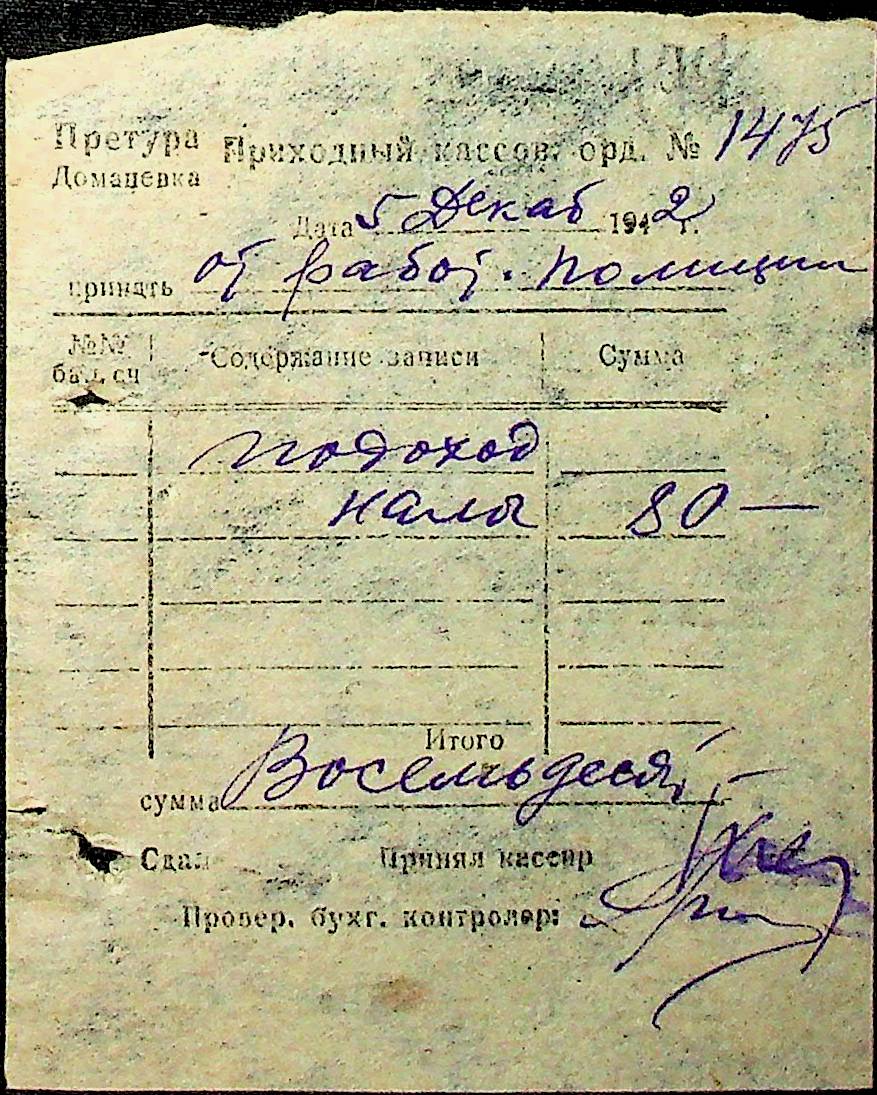 Претура Приходный кассов. орд. № 1475
Домачевка
Дата 5 Декаб 1942 г.
принять от работ. полиции
№№ бал. сч Содержание записи Сумма
подоход
налог 80 —
Итого
сумма Восемьдесят
Сдал Принял кассир
Провер. бухг. контролер: